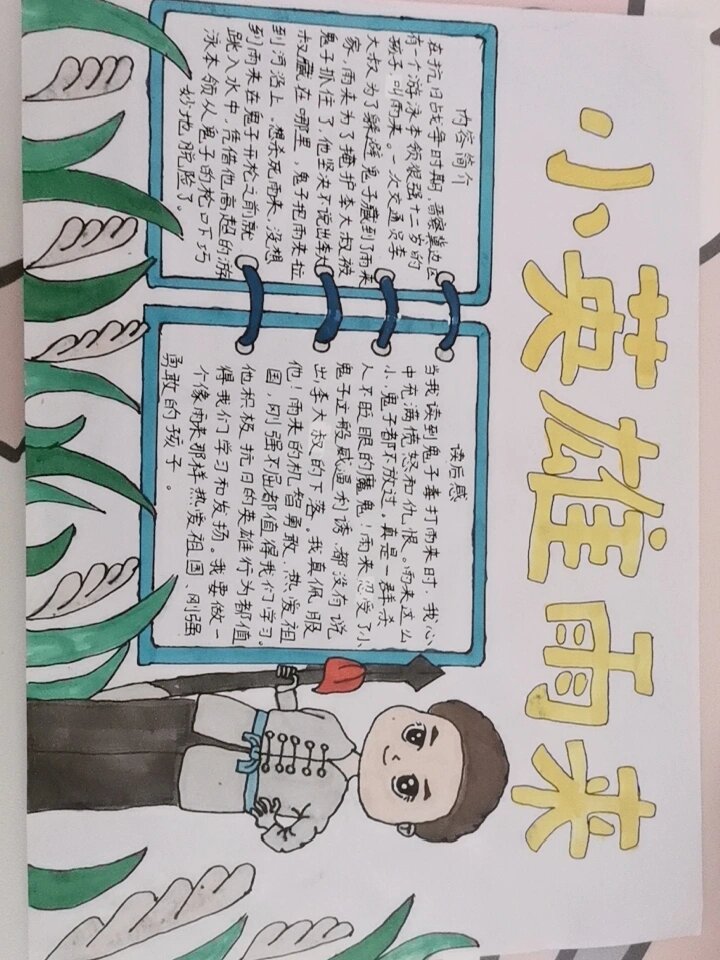 小英雄雨来
内容简介
在抗日战争时期,晋察冀边区
有一个游泳本领很强十二岁的
孩子,叫雨来。一次交通员李
大叔为了躲避鬼子藏到了雨来
家,雨来为了掩护李大叔被
鬼子抓住了,他坚决不说出李大
叔藏在哪里,鬼子把雨来拉
到河沿上,想杀死雨来,没想
到雨来在鬼子开枪之前就
跳入水中,凭借他高超的游
泳本领从鬼子的枪口下巧
妙地脱险了。
读后感
当我读到鬼子毒打雨来时,我心
中充满愤怒和仇恨。雨来这么
小,鬼子都不放过,真是一群杀
人不眨眼的魔鬼!雨来忍受了小
鬼子又般威逼利诱,都没有说
出李大叔的下落。我真佩服
他!雨来的机智勇敢、热爱祖
国,刚强不屈都值得我们学习。
他积极抗日的英雄行为都值
得我们学习和发扬。我要做一
个像雨来那样热爱祖国、刚强
勇敢的孩子。